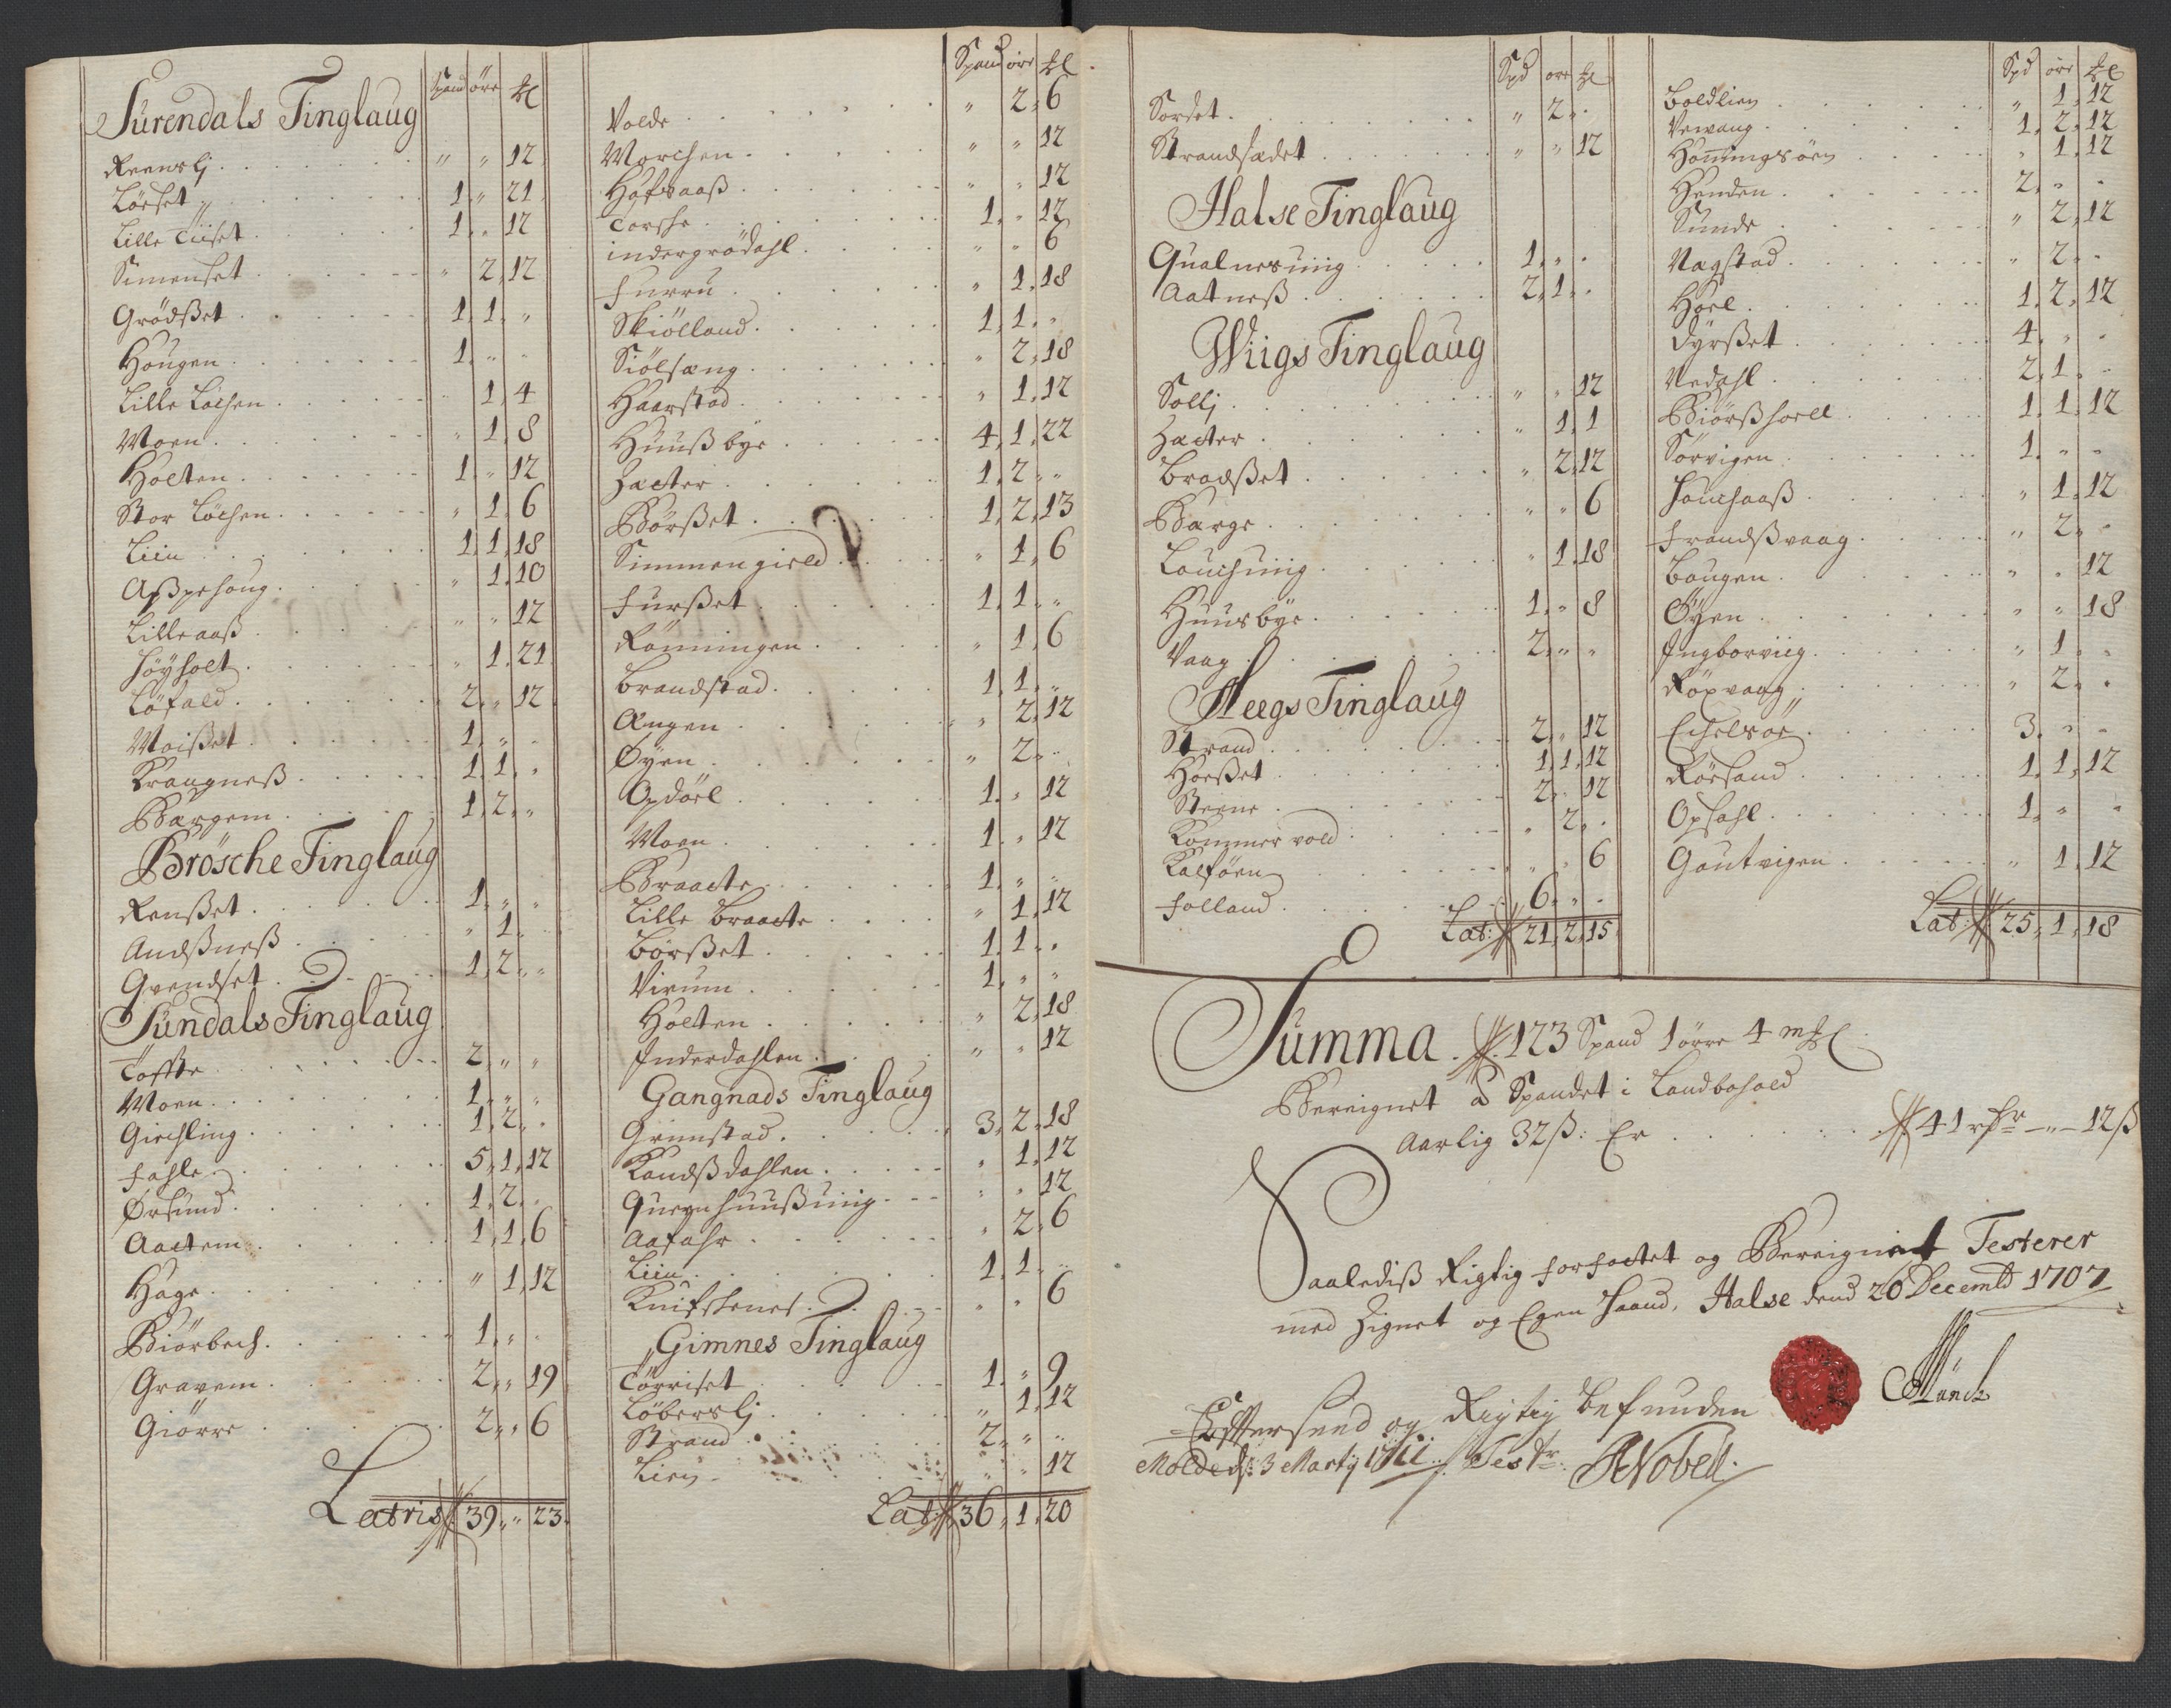 Surendals Tinglaug Spand öre ℔
Reenslj . . . „ „ 12
Löeset . . . 1 „ 21
Lille Tiiset . . . 1 „ 12
Simenset . . . „ 2 12
Grödßet . . . 1 1 „
Hougen . . . 1 „ „
Lille Löchen . . . „ 1 4
Moen . . . „ 1 8
Holten . . . 1 „ 12
Stor Löchen . . . „ 1 6
Liin . . . 1 1 18
Aßpehoug . . . „ 1 10
Lilleaaß . . . „ „ 12
Höyholt . . . „ 1 21
Löfald . . . 2 „ 12
Moißet . . . 1 „ „
Krangneß . . . 1 1 „
Bærgem . . . 1 2 „
Brösche Tinglaug
Renßet . . . 1 „ „
Andßneß . . . „ 1 „
Gvendset . . . 1 2 „
Sundals Tinglaug
Tofte . . . 2 „ „
Moen . . . 1 „ „
Giechling . . . 1 2 „
Fahle . . . 5 1 12
Ørsund . . . 1 2 „
Aactem . . . 1 1 6
Hage . . . „ 1 12
Biörbech . . . 1 „ „
Gravem . . . 2 „ 19
Giörre . . . 2 „ 6
Latris 39 „ 23
Spand öre ℔
Volde . . . „ 2 6
Morchen . . . „ „ 12
Hafsaaß . . . „ „ 12
Torske . . . 1 „ 12
indergrödahl . . . „ „ 6
Furru . . . „ 1 18
Skiölland . . . 1 1 „
Siölsæng . . . „ 2 18
Haarstad . . . „ 1 12
Huußbye . . . 4 1 22
Zæter . . . 1 2 „
Börßet . . . 1 2 13
Simmengield . . . „ 1 6
Furßet . . . 1 1 „
Rönningen . . . „ 1 6
Brandstad . . . 1 1 „
Ængen . . . „ 2 12
Øyen . . . „ 2 „
Opdöel . . . 1 „ 12
Moen . . . 1 „ 12
Braacte . . . 1 „ „
Lille Braacte . . . „ 1 12
Börßet . . . 1 1 „
Virum . . . 1 „ „
Holten . . . „ 2 18
Inderdahlen . . . „ „ 12
Gangnads Tinglaug
Grimstad . . . 3 2 18
Kandßdahlen . . . „ 1 12
Quernhuußuiig . . . „ „ 12
Aafahr . . . „ 2 6
Liin . . . 1 1 „
Knifskenet . . . „ „ 6
Gimnes Tinglaug
Törriset . . . 1 „ 9
Löberslj . . . „ 1 12
Strand . . . 2 „ „
Lien . . . „ „ 12
Lat: 36 1 20
Spd ore ℔
Sordet . . . „ 2 „
Strandsædet . . . „ „ 12
Halse Tinglaug
Qualnesuiig . . . 1 „ „
Aatneß . . . 2 1 „
Wiigs Tinglaug
Sollj . . . „ „ 12
Zæter . . . „ 1 1
Bradßet . . . „ 2 12
Bærge . . . „ „ 6
Louchuiig . . . „ 1 18
Huusbye . . . 1 „ 8
Vaag . . . 2 „ „
Aeegs Tinglaug
Strand . . . 2 „ 12
Hoeßet . . . 1 1 12
Steene . . . 2 „ 12
Rommervold . . . „ 2 „
Kalföen . . . „ „ 6
Folland . . . 6 „ „
Lat: 21 2 15
Spd öre ℔
Boldlien . . . „ 1 12
Vevang . . . 1 2 12
Honningsöen . . . „ 1 12
Henden . . . 2 „ „
Sunde . . . „ 2 12
Vagstad . . . „ 2 „
Hoel . . . 1 2 12
Dyrßet . . . 4 „ „
Nedahl . . . 2 1 „
Biörßhoell . . . 1 1 12
Sörvigen . . . 1 „ „
Houchaaß . . . „ 1 12
Frandßvaag . . . „ 2 „
Bougen . . . „ „ 12
Øyen . . . „ „ 18
Ingborviig . . . „ 1 „
Röxvaag . . . „ 2 „
Echelsöe . . . 3 „ „
Röesand . . . 1 1 12
Opsahl . . . 1 „ „
Gautvigen . . . „ 1 12
Lat: 25 1 18
Summa . 123 Spand 1 örre 4 m℔
Bereignet â Spandet i Landbohold
Aarlig 32 ß: Er . . . 41 rdr „ 12 ß
Saalediß Rigtig forfactet og Bereignet Testerer
med Zignet og Egen Haand, Halse dend 20 Decembr 1707
Münch
Efftersend og Rigtig befunden
Molde d: 3 Martij 1711 Testr: Nobell